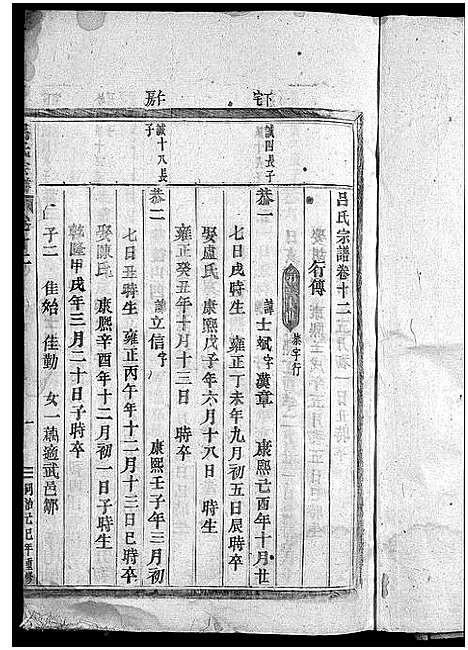 呂氏宗譜卷十二
行傳
恭字行
下宅
誠四長子
恭一 諱士斌字漢章 康熙己酉年十月廿
七日戌時生 雍正丁未年九月初五日辰時卒
娶盧氏 康熙戊子年六月十八日 時生
雍正癸丑年十月十三日 時卒
上房
誠十八長子
恭二 諱立信字 康熙壬子年三月初
七日丑時生 雍正丙午年十二月十三日巳時卒
娶陳氏 康熙辛酉年十二月初一日子時生
乾隆甲戌年三月二十日子時卒
子二 佳始 佳勤 女一 適武邑鄒
一
同治己巳年重修